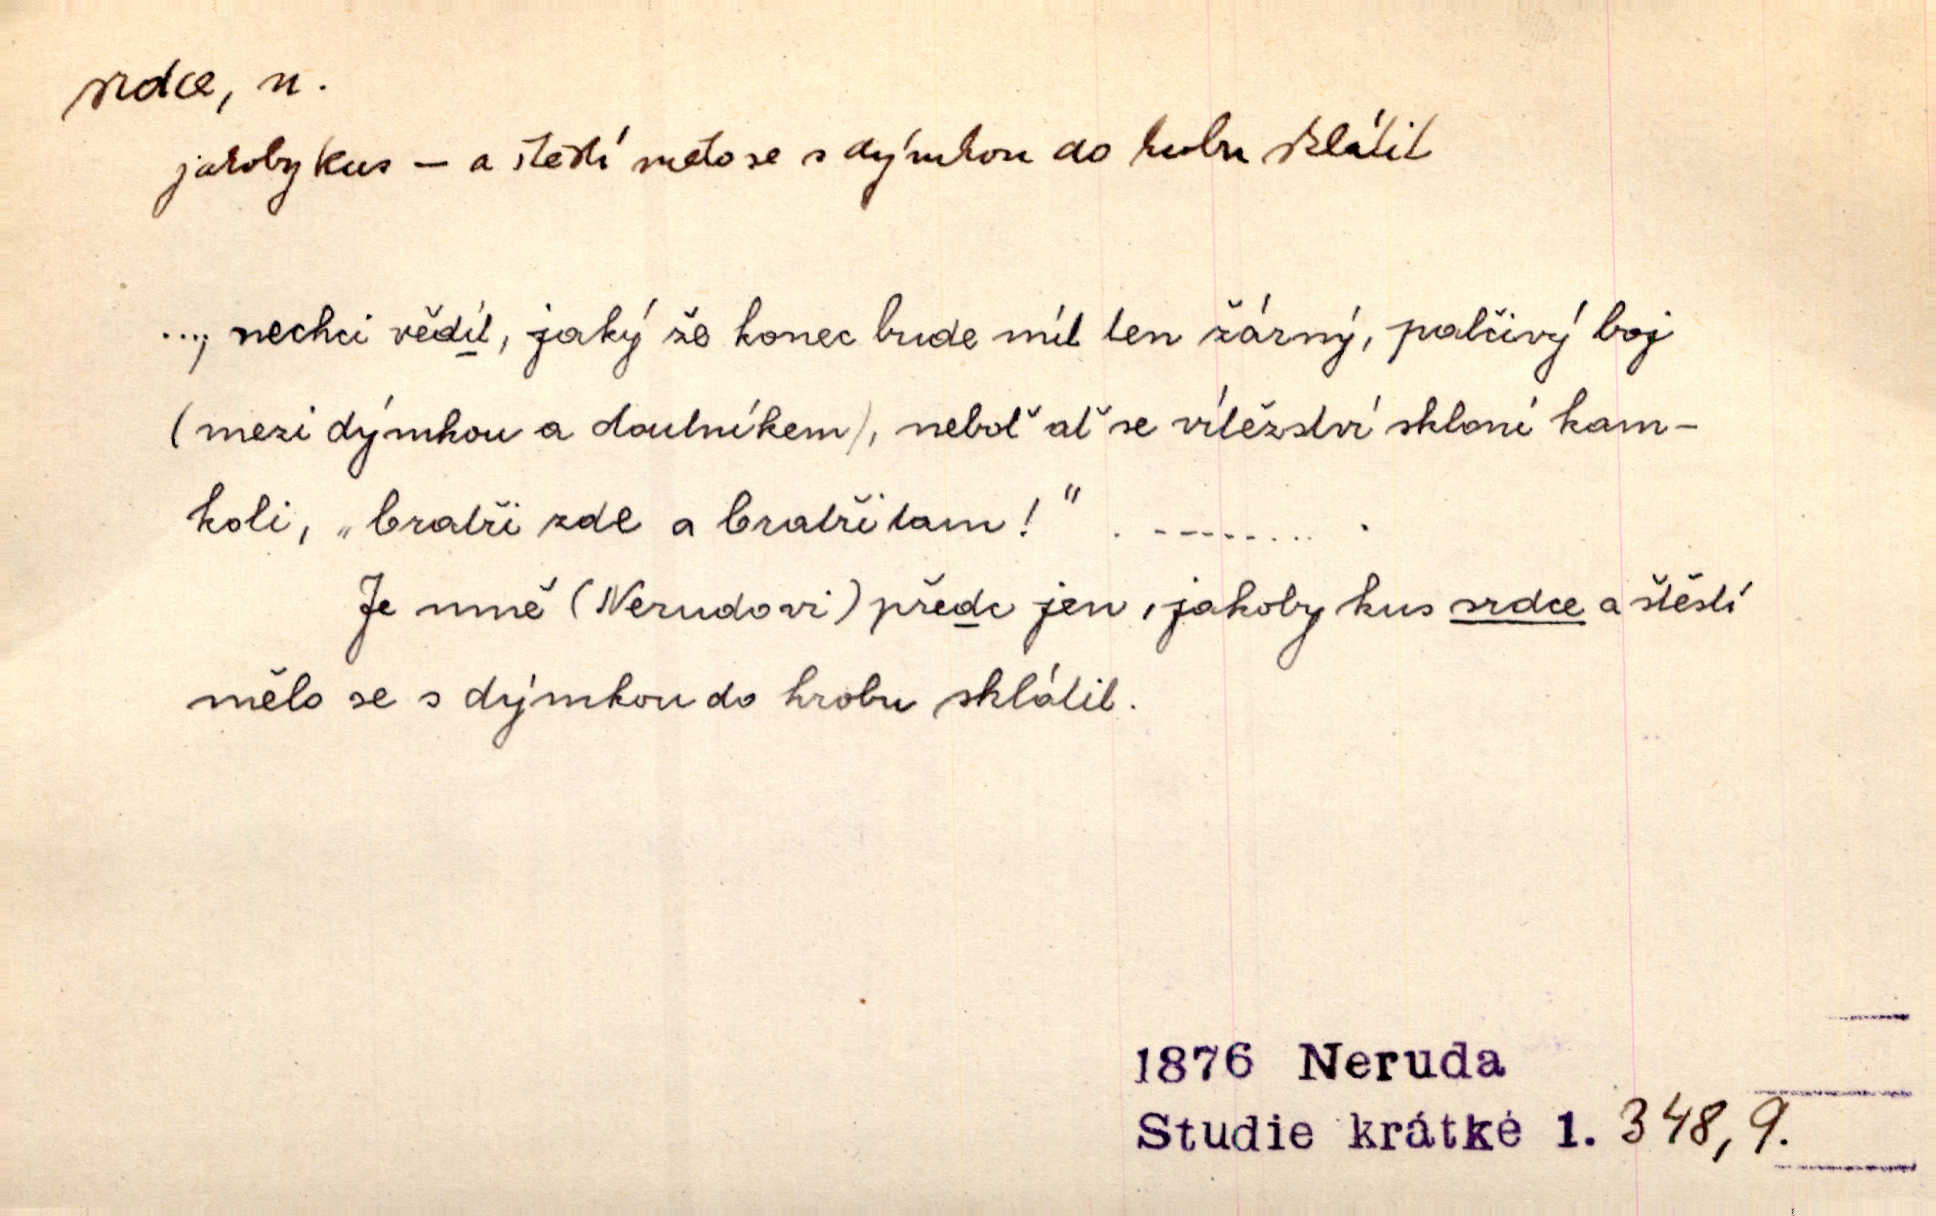 srdce, n.
jakoby kus – a štěstí mělo se s dýmkou do hrobu sklátit
..., nechci vědít, jaký že konec bude mít ten žárný, palčivý boj
(mezi dýmkou a doutníkem), neboť ať se vítězství skloní kam-
koli, „bratři zde a bratři tam!" . - - - - - . . . .
Je mně (Nerudovi) předc jen, jakoby kus srdce a štěstí
mělo se s dýmkou do hrobu sklátit.
1876 Neruda
Studie krátké 1. 348, 9.